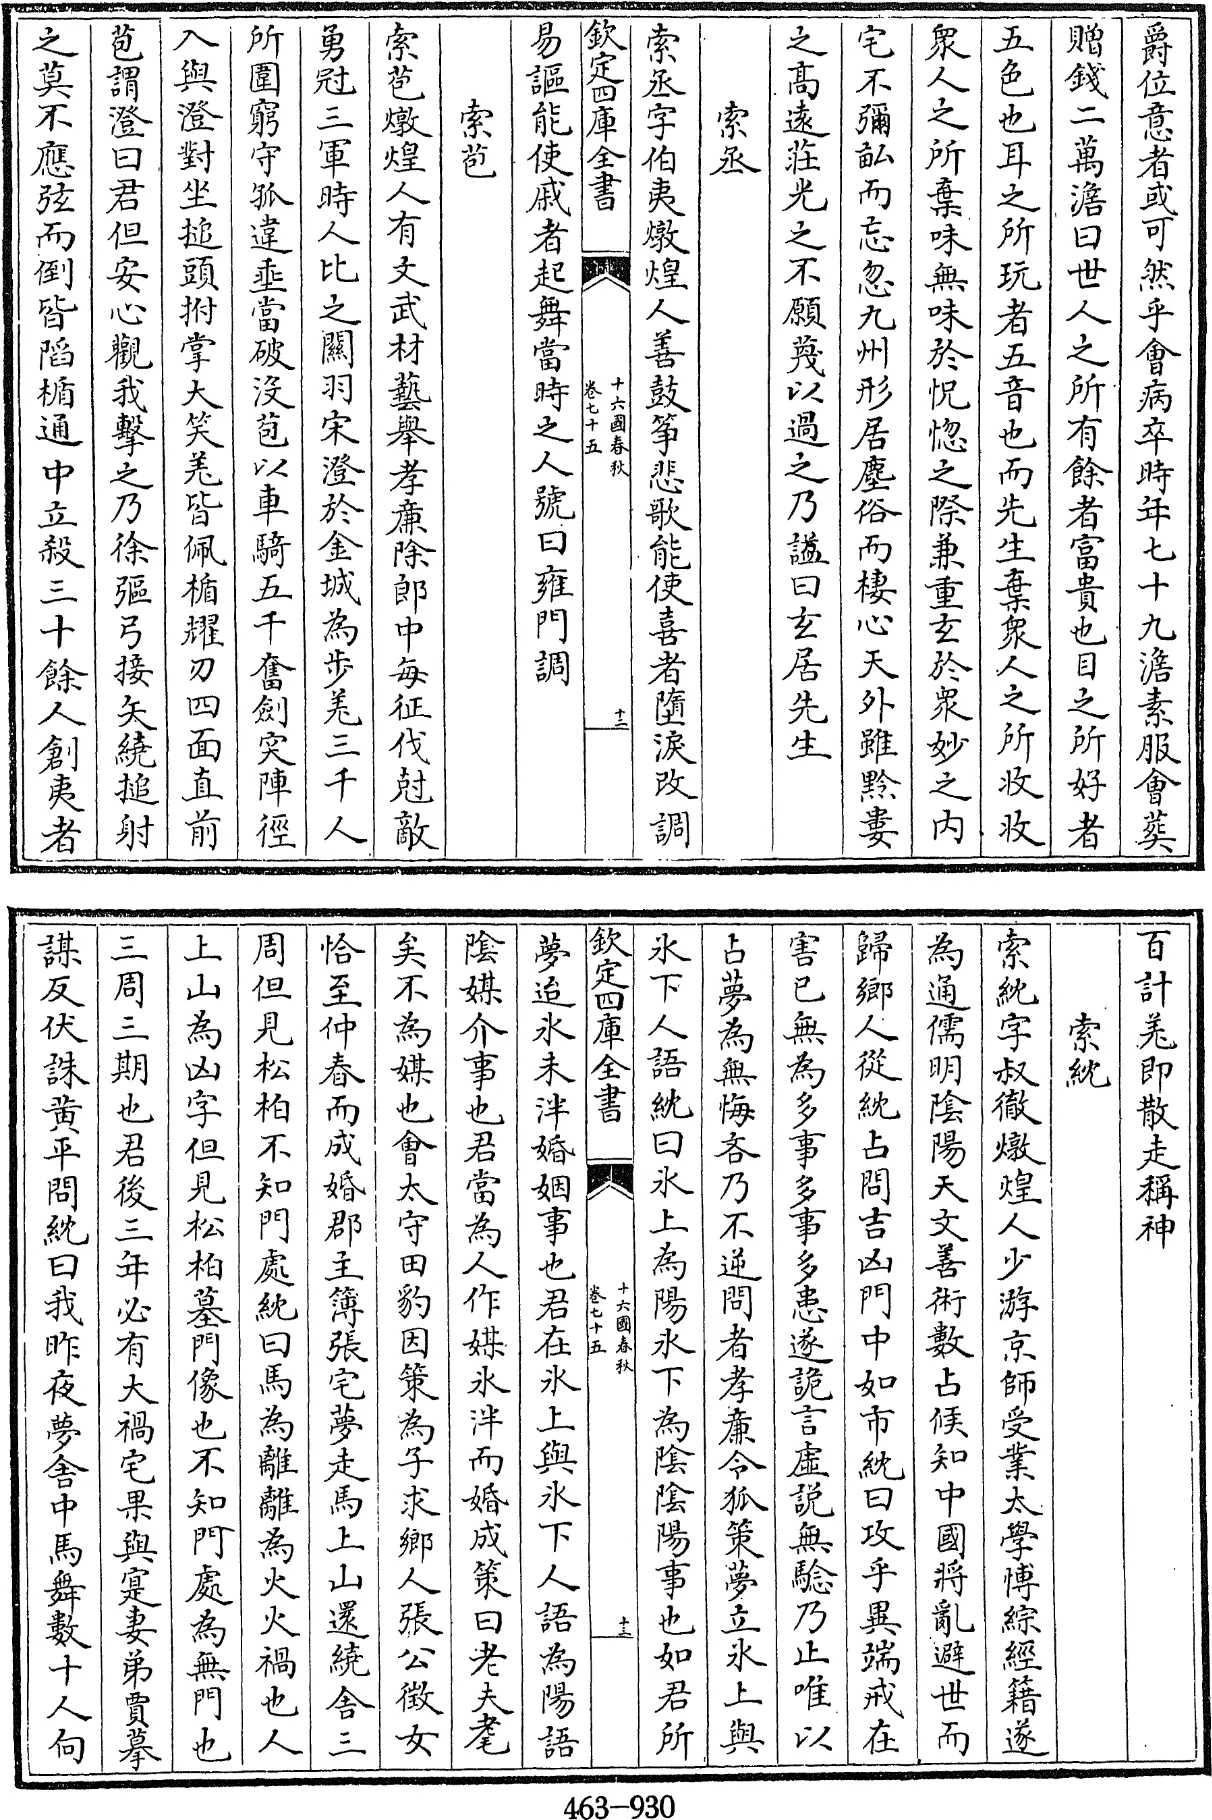 爵位意者或可然乎會病卒時年七十九澹素服會葬
贈錢二萬澹曰世人之所有餘者富貴也目之所好者
五色也耳之所玩者五音也而先生棄衆人之所收收
衆人之所棄味無味於怳惚之際兼重玄於衆妙之内
宅不彌畝而忘忽九州形居塵俗而棲心天外雖黔婁
之高遠莊光之不願蔑以過之乃諡曰玄居先生
索丞
索丞字伯夷燉煌人善鼓箏悲歌能使喜者墮淚改調
欽定四庫全書
十六國春秋
卷七十五
十二
易謳能使戚者起舞當時之人號曰雍門調
索苞
索苞燉煌人有文武材藝舉孝廉除郎中每征伐尅敵
勇冠三軍時人比之關羽宋澄於金城為步羌三千人
所圍窮守孤違垂當破沒苞以車騎五千奮劍突陣徑
入與澄對坐搥頭拊掌大笑羌皆佩楯耀刃四面直前
苞謂澄曰君但安心觀我擊之乃徐彄弓接矢繞搥射
之莫不應弦而倒皆陷楯通中立殺三十餘人創夷者
百計羌即散走稱神
索紞
索紞字叔徹燉煌人少游京師受業太學博綜經籍遂
為通儒明陰陽天文善術數占候知中國將亂避世而
歸鄉人從紞占問吉凶門中如市紞曰攻乎異端戒在
害已無為多事多事多患遂詭言虛説無驗乃止唯以
占夢為無悔吝乃不逆問者孝廉令狐策夢立氷上與
氷下人語紞曰氷上為陽氷下為陰陰陽事也如君所
欽定四庫全書
十六國春秋
卷七十五
十三
夢迨氷未泮婚姻事也君在氷上與氷下人語為陽語
陰媒介事也君當為人作媒氷泮而婚成策曰老夫耄
矣不為媒也會太守田豹因策為子求鄉人張公徵女
恰至仲春而成婚郡主簿張宅夢走馬上山還繞舍三
周但見松柏不知門處紞曰馬為離離為火火禍也人
上山為凶字但見松柏墓門像也不知門處為無門也
三周三期也君後三年必有大禍宅果與寔妻弟賈摹
謀反伏誅黄平問紞曰我昨夜夢舍中馬舞數十人向
463-930